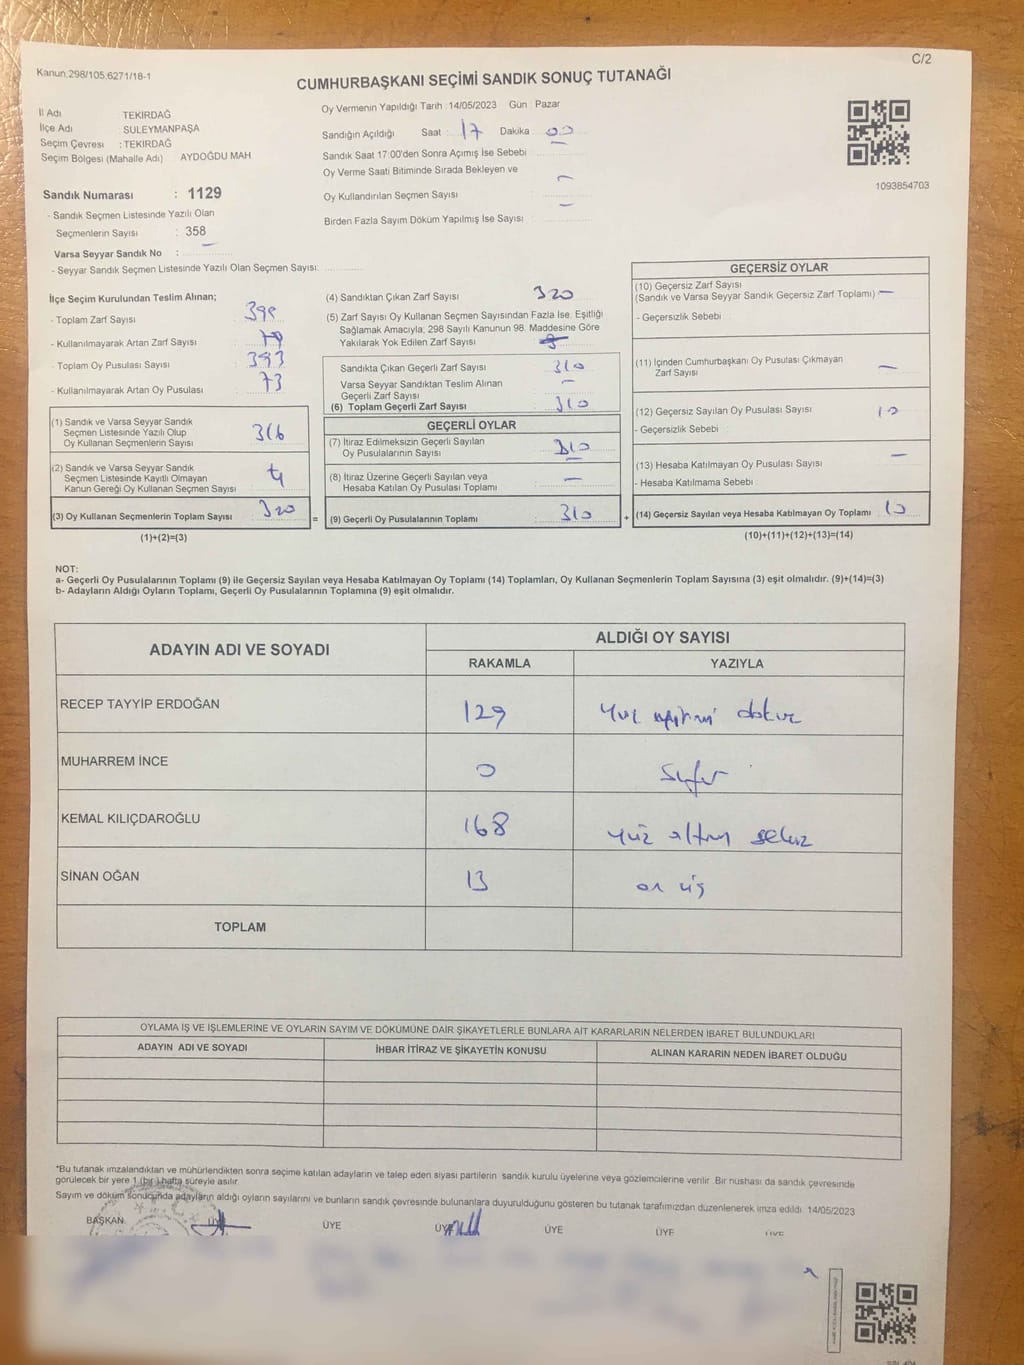 C/2
Kanun:298/105,6271/18-1
CUMHURBAŞKANI SEÇİMİ SANDIK SONUÇ TUTANAĞI
İl Adı TEKİRDAĞ
İlçe Adı SÜLEYMANPAŞA
Seçim Çevresi : TEKİRDAĞ
Seçim Bölgesi (Mahalle Adı) AYDOĞDU MAH
Oy Vermenin Yapıldığı Tarih :14/05/2023 Gün : Pazar
Sandığın Açıldığı Saat : 17 Dakika 00
Sandık Saat 17:00'den Sonra Açımış İse Sebebi
Oy Verme Saati Bitiminde Sırada Bekleyen ve
Oy Kullandırılan Seçmen Sayısı -
Birden Fazla Sayım Döküm Yapılmış İse Sayısı -
1093854703
Sandık Numarası : 1129
- Sandık Seçmen Listesinde Yazılı Olan
Seçmenlerin Sayısı : 358
Varsa Seyyar Sandık No : -
- Seyyar Sandık Seçmen Listesinde Yazılı Olan Seçmen Sayısı:
İlçe Seçim Kurulundan Teslim Alınan;
- Toplam Zarf Sayısı
- Kullanılmayarak Artan Zarf Sayısı
- Toplam Oy Pusulası Sayısı : 393
- Kullanılmayarak Artan Oy Pusulası : 73
(1) Sandık ve Varsa Seyyar Sandık
Seçmen Listesinde Yazılı Olup
Oy Kullanan Seçmenlerin Sayısı 316
(2) Sandık ve Varsa Seyyar Sandık
Seçmen Listesinde Kayıtlı Olmayan
Kanun Gereği Oy Kullanan Seçmen Sayısı 4
(3) Oy Kullanan Seçmenlerin Toplam Sayısı 320
(1)+(2)=(3)
(4) Sandıktan Çıkan Zarf Sayısı 320
(5) Zarf Sayısı Oy Kullanan Seçmen Sayısından Fazla İse, Eşitliği
Sağlamak Amacıyla, 298 Sayılı Kanunun 98. Maddesine Göre
Yakılarak Yok Edilen Zarf Sayısı
Sandıkta Çıkan Geçerli Zarf Sayısı 310
Varsa Seyyar Sandıktan Teslim Alınan
Geçerli Zarf Sayısı -
(6) Toplam Geçerli Zarf Sayısı 310
GEÇERLİ OYLAR
(7) İtiraz Edilmeksizin Geçerli Sayılan
Oy Pusulalarının Sayısı 310
(8) İtiraz Üzerine Geçerli Sayılan veya
Hesaba Katılan Oy Pusulası Toplamı -
= (9) Geçerli Oy Pusulalarının Toplamı 310
GEÇERSİZ OYLAR
(10) Geçersiz Zarf Sayısı
(Sandık ve Varsa Seyyar Sandık Geçersiz Zarf Toplamı) -
- Geçersizlik Sebebi
(11) İçinden Cumhurbaşkanı Oy Pusulası Çıkmayan
Zarf Sayısı -
(12) Geçersiz Sayılan Oy Pusulası Sayısı 10
- Geçersizlik Sebebi
(13) Hesaba Katılmayan Oy Pusulası Sayısı -
- Hesaba Katılmama Sebebi
+ (14) Geçersiz Sayılan veya Hesaba Katılmayan Oy Toplamı 10
(10)+(11)+(12)+(13)=(14)
NOT:
a- Geçerli Oy Pusulalarının Toplamı (9) ile Geçersiz Sayılan veya Hesaba Katılmayan Oy Toplamı (14) Toplamları, Oy Kullanan Seçmenlerin Toplam Sayısına (3) eşit olmalıdır. (9)+(14)=(3)
b- Adayların Aldığı Oyların Toplamı, Geçerli Oy Pusulalarının Toplamına (9) eşit olmalıdır.
ADAYIN ADI VE SOYADI ALDIĞI OY SAYISI
RAKAMLA YAZIYLA
RECEP TAYYİP ERDOĞAN 129 yüz yirmi dokuz
MUHARREM İNCE 0 sıfır
KEMAL KILIÇDAROĞLU 168 yüz altmış sekiz
SİNAN OĞAN 13 on üç
TOPLAM
OYLAMA İŞ VE İŞLEMLERİNE VE OYLARIN SAYIM VE DÖKÜMÜNE DAİR ŞİKAYETLERLE BUNLARA AİT KARARLARIN NELERDEN İBARET BULUNDUKLARI
ADAYIN ADI VE SOYADI İHBAR İTİRAZ VE ŞİKAYETİN KONUSU ALINAN KARARIN NEDEN İBARET OLDUĞU
*Bu tutanak imzalandıktan ve mühürlendikten sonra seçime katılan adayların ve talep eden siyasi partilerin sandık kurulu üyelerine veya gözlemcilerine verilir. Bir nüshası da sandık çevresinde
görülecek bir yere 1 (bir) hafta süreyle asılır.
Sayım ve döküm sonucunda adayların aldığı oyların sayılarını ve bunların sandık çevresinde bulunanlara duyurulduğunu gösteren bu tutanak tarafımızdan düzenlenerek imza edildi. 14/05/2023
BAŞKAN ÜYE ÜYE ÜYE ÜYE ÜYE ÜYE